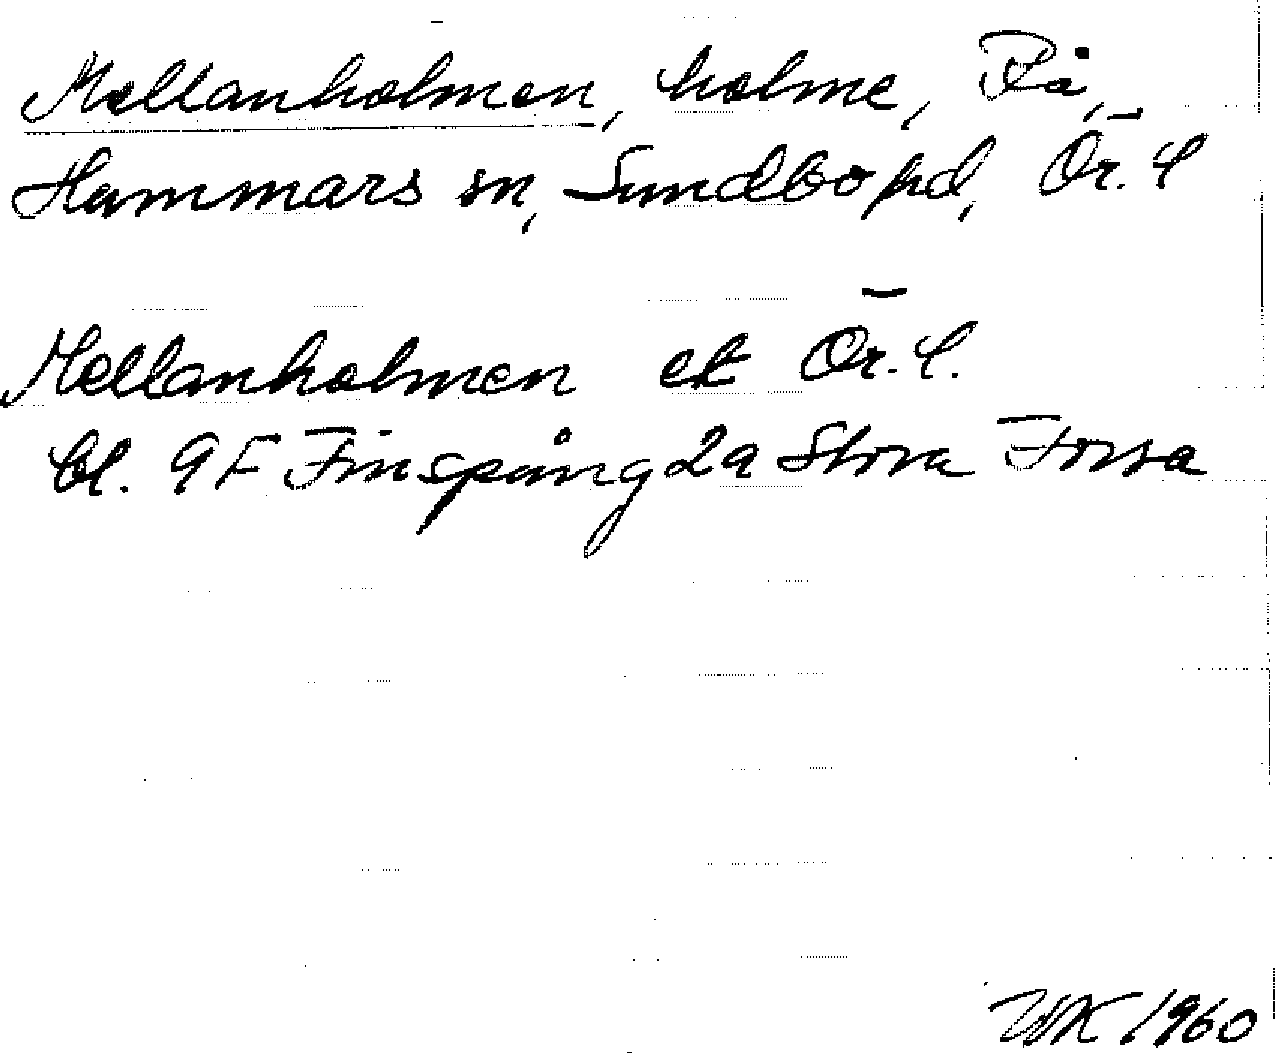 Mellanholmen, holme, Rå,
Hammars sn, Sundbo hd, Ör. l
Mellanholmen ek Ör. l.
bl. 9F Finspång 2a Stora Forsa
WK 1960